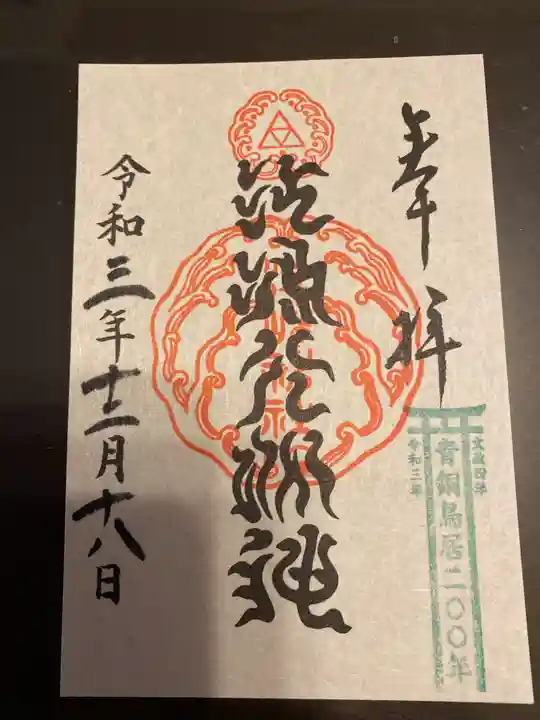 奉拝
文政四年
青銅鳥居二〇〇年
令和三年
江嶋大明神
令和三年十二月十八日